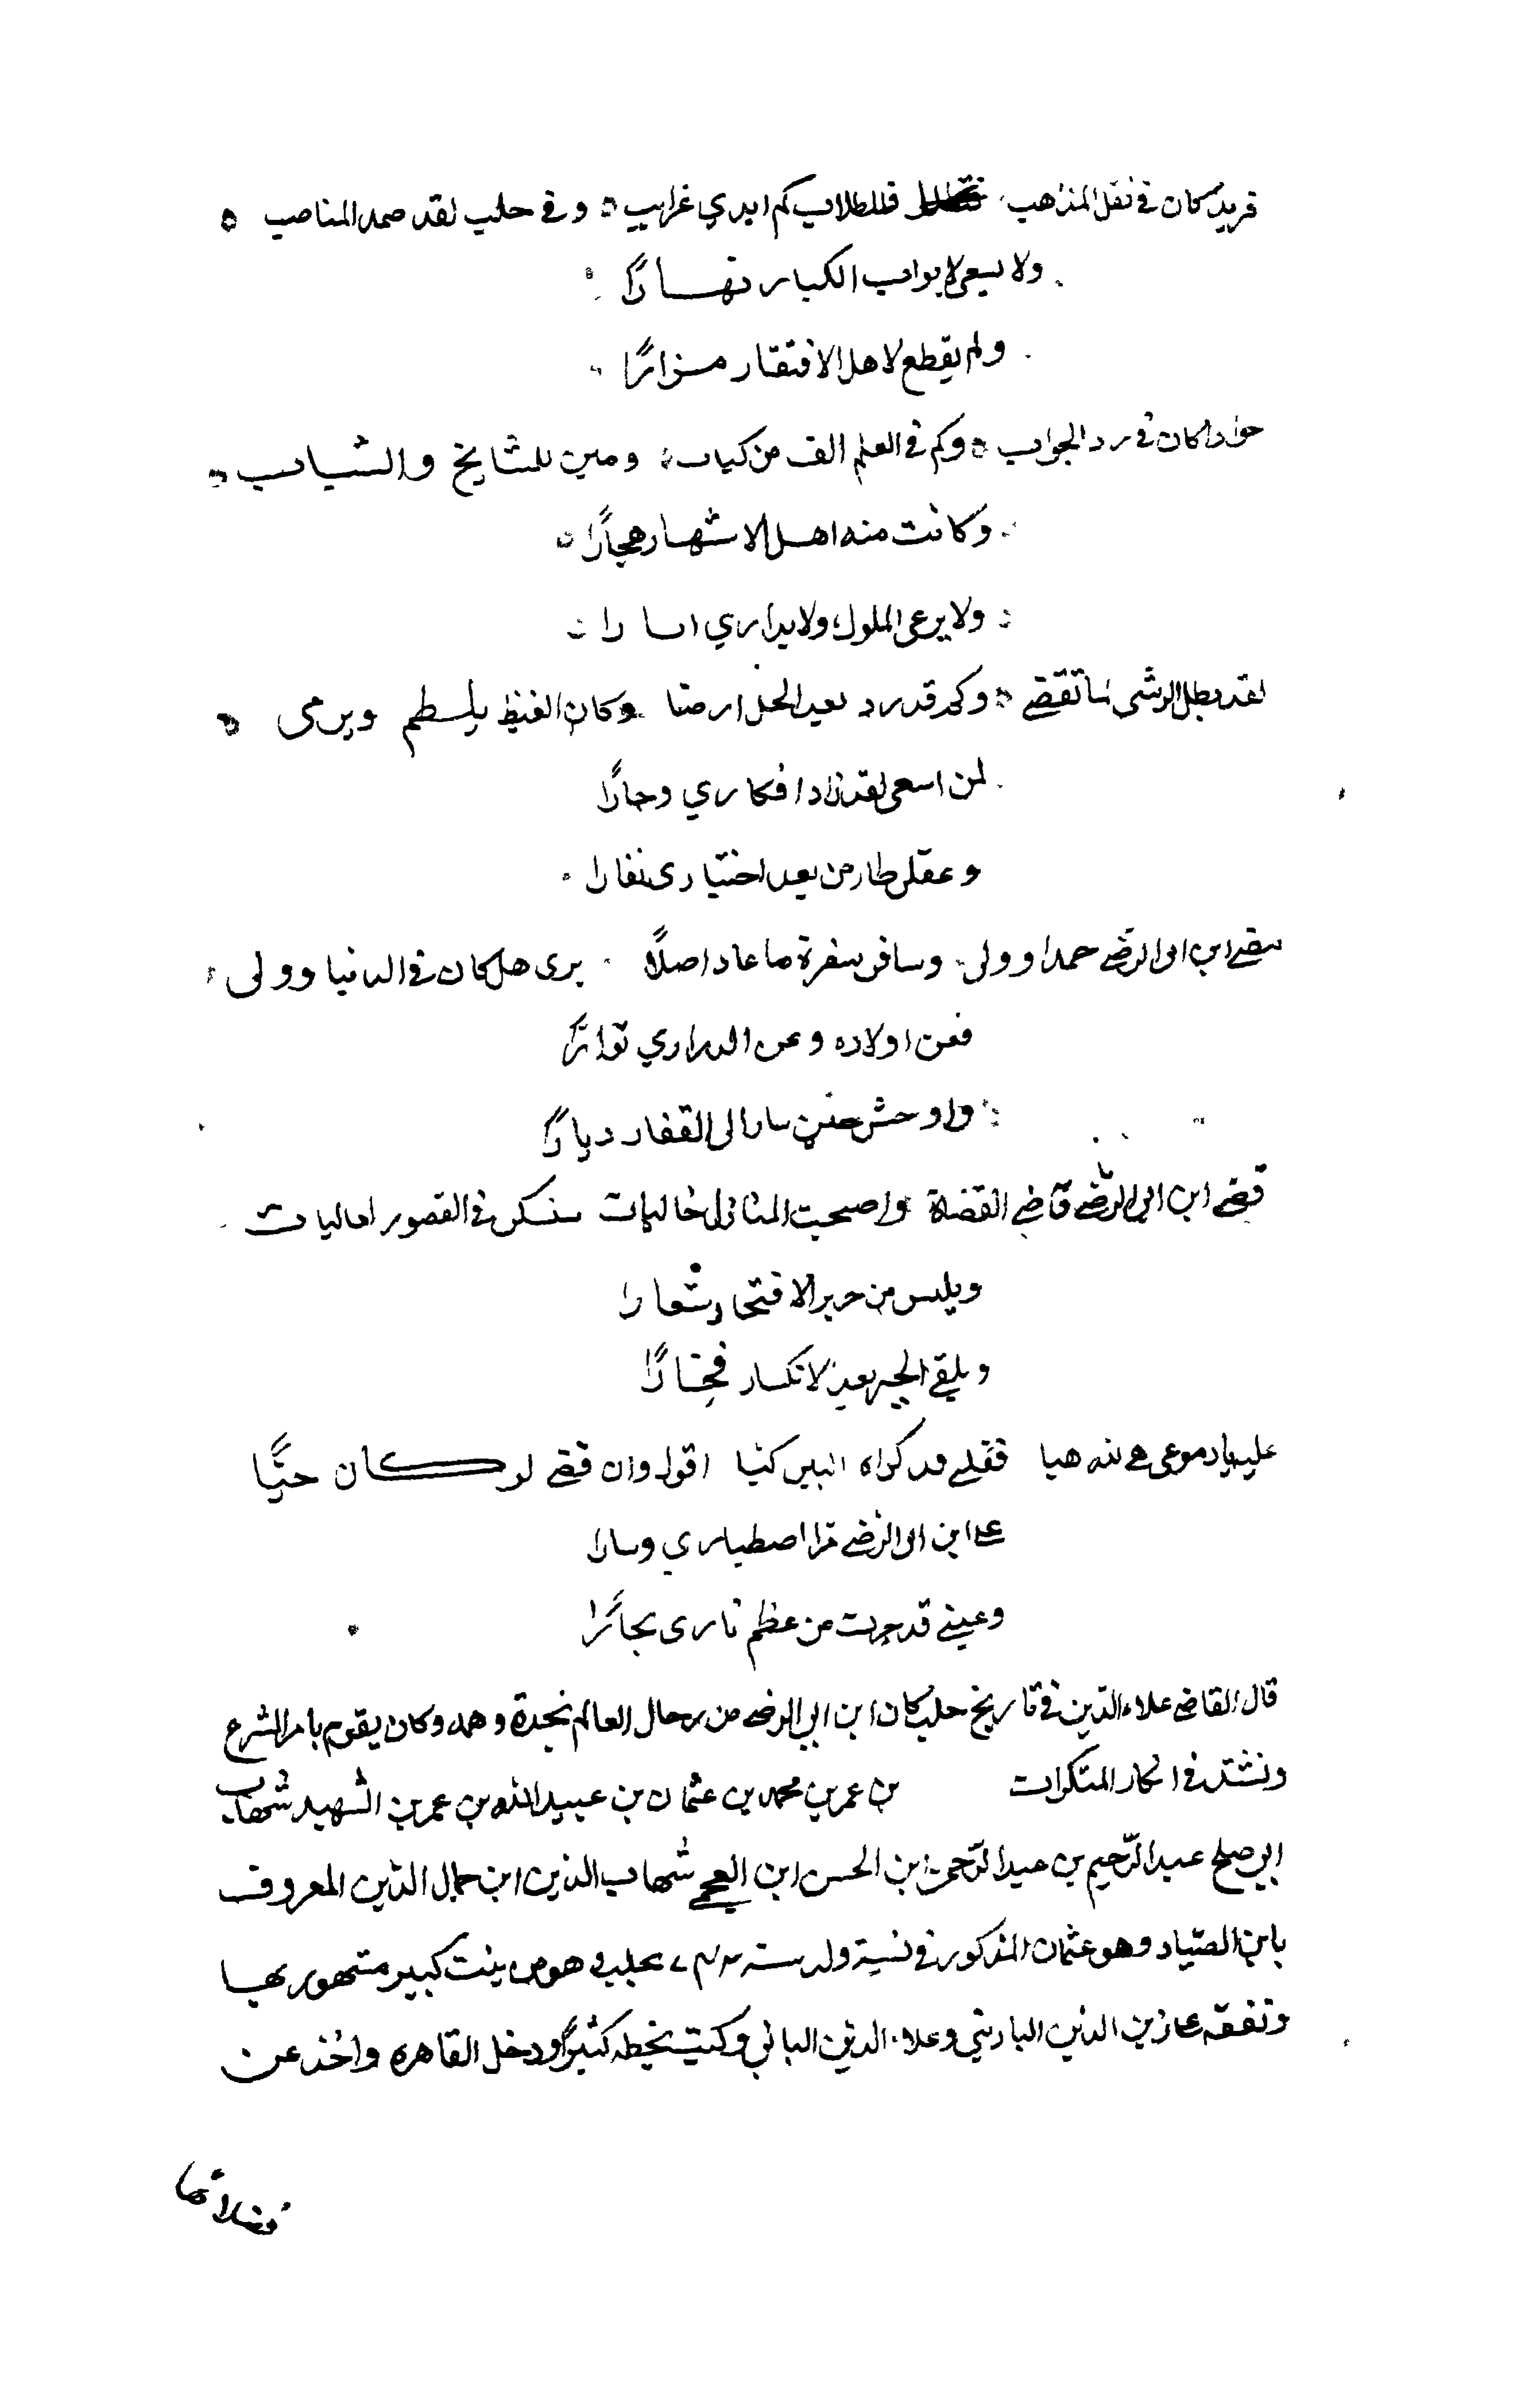 فريد كان في نقل المذاهب فللطلاب كم ابدي غرايب وفي حلب لقد صمد المناصب
ولا يسعى لابواب الكبار نهارًا
ولم يقطع لاهل الافتقار مزارًا
جوادا كان في رد الجواب وكم في العلم الف من كتاب ومين للمشايخ والشباب
وكانت منه اهل الاشتهار هجارًا
ولا يرعى الملول ولا يداري اسارا
لقد بطل الرشى لما تقضى وكم قد رد بعيد الحل ارضا وكان الغيظ يلسطم ويرمى
لمن اسعى لقد زاد افكاري وحارًا
وعقلي طار من بعد اختياري نفارا
سقى ابن ابي الرضى حمدا وولى وسافر سفرة ما عاد اصلًا يرى هل كان في الدنيا وولى
فعن اولاده وعن الدراري توارًا
واوحش حين سار الى القفار ديارًا
قضى ابن ابي الرضى قاضي القضاة واصبحت المنازل خاليات سنسكن في القصور العاليات
ويلبس من حرير الافتخار شعارا
ويلقى الجبر بعد الانكسار فخارًا
عليه يا دموعي هيا فقلبي قد كواه البين كيا اقول وان قضى لو كان حيًّا
على ابن ابي الرضى اصطباري وسارا
وعيني قد جرت من عظم ناري بحارًا
قال القاضي علاء الدين في تاريخ حلب كان ابن ابي الرضى من رجال العالم نجدة وهمه وكان يقوم بامر الشرع
ونشتد في انكار المنكرات بن عمر بن محمد بن عثمان بن عبيد الله بن عمر بن الشهيد شهاب
ابي صلح عبد الرحيم بن عبد الرحمن ابن الحسن ابن العجمي شهاب الدين ابن جمال الدين المعروف
بابن الصياد وهو عثمان المذكور في نسبة ولد سنة بحلب وهو من بيت كبير مشهور بها
وتفقه على زين الدين الباريني وعلاء الدين البابي وكتب بخطه كثيرًا ودخل القاهره واخذ عن
فضلائها